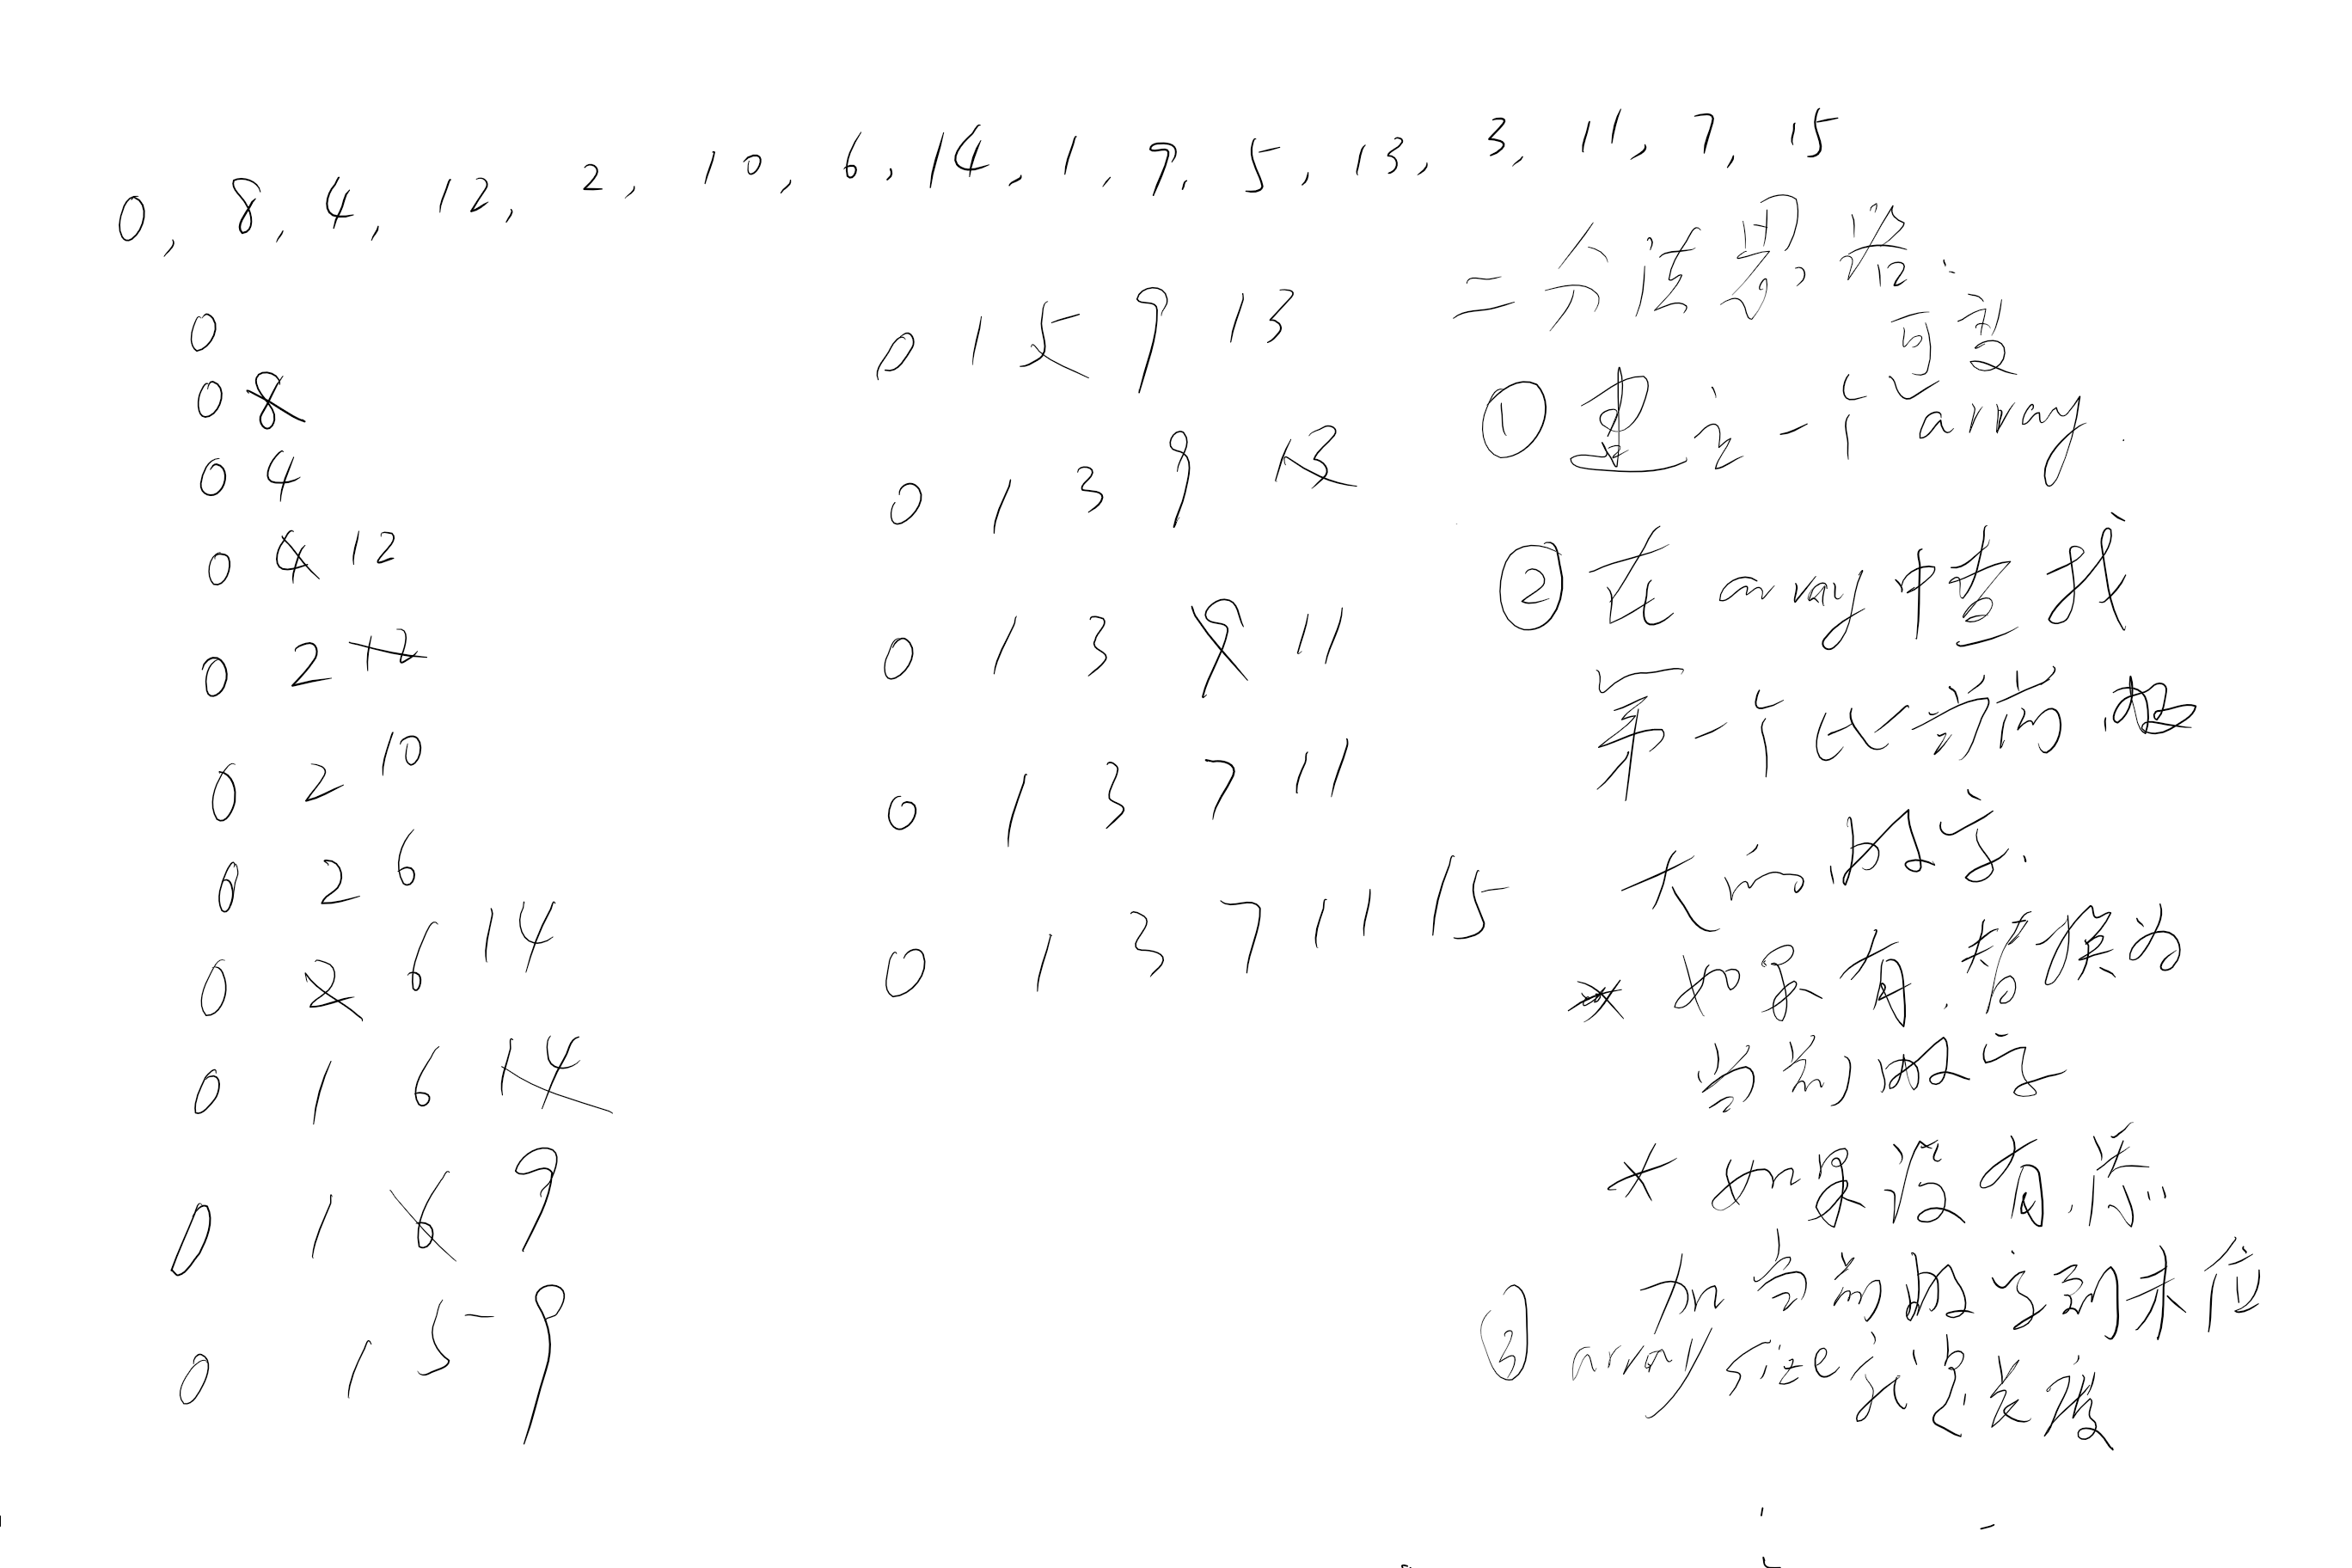 0, 8, 4, 12, 2, 10, 6, 14, 1, 9, 5, 13, 3, 11, 7, 15
0
0 8
0 4
0 4 12
0 2 12
0 2 10
0 2 6
0 2 6 14
0 1 6 14
0 1 6 9
0 1 5 9
0 1 5 9 13
0 1 3 9 13
0 1 3 9 11
0 1 3 7 11
0 1 3 7 11 15
二分法思路:
可变
① 建立一个 array.
② 在 array 中查找
第一个比当前
大的数字.
* 如果有,替换为
当前数字
* 如果没有,添
加当前数字到末位
③ array size 就是长度